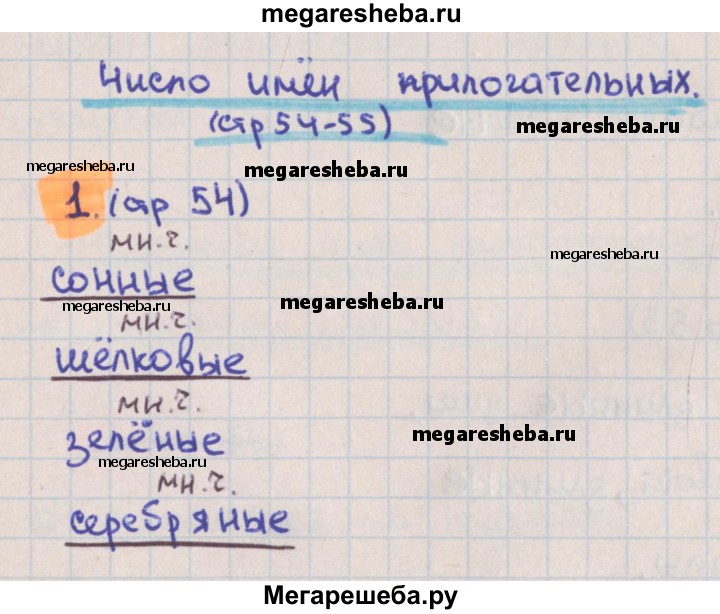 megaresheba.ru
Число имён прилогательных.
(стр 54-55)
megaresheba.ru
megaresheba.ru
megaresheba.ru
1. (стр 54)
мн.ч.
megaresheba.ru
сонные
megaresheba.ru
megaresheba.ru
мн.ч.
шёлковые
мн.ч.
megaresheba.ru
зелёные
megaresheba.ru
мн.ч.
серебряные
megaresheba.ru
Мегарешеба.ру